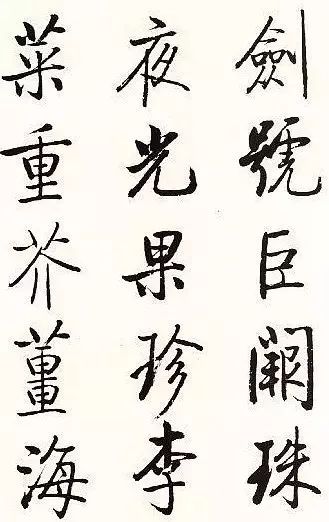 劍號巨闕珠
夜光果珍李
菜重芥薑海